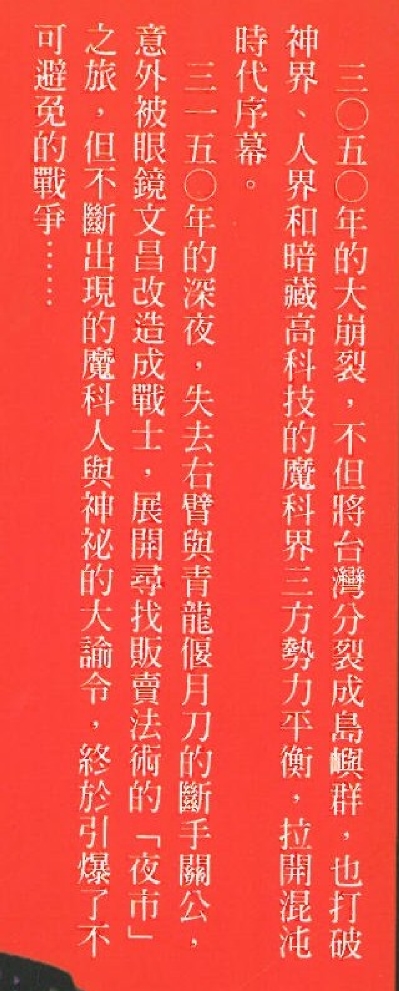 三〇五〇年的大崩裂，不但將台灣分裂成島嶼群，也打破
神界、人界和暗藏高科技的魔科界三方勢力平衡，拉開混沌
時代序幕。
三一五〇年的深夜，失去右臂與青龍偃月刀的斷手關公，
意外被眼鏡文昌改造成戰士，展開尋找販賣法術的「夜市」
之旅，但不斷出現的魔科人與神祕的大諭令，終於引爆了不
可避免的戰爭……